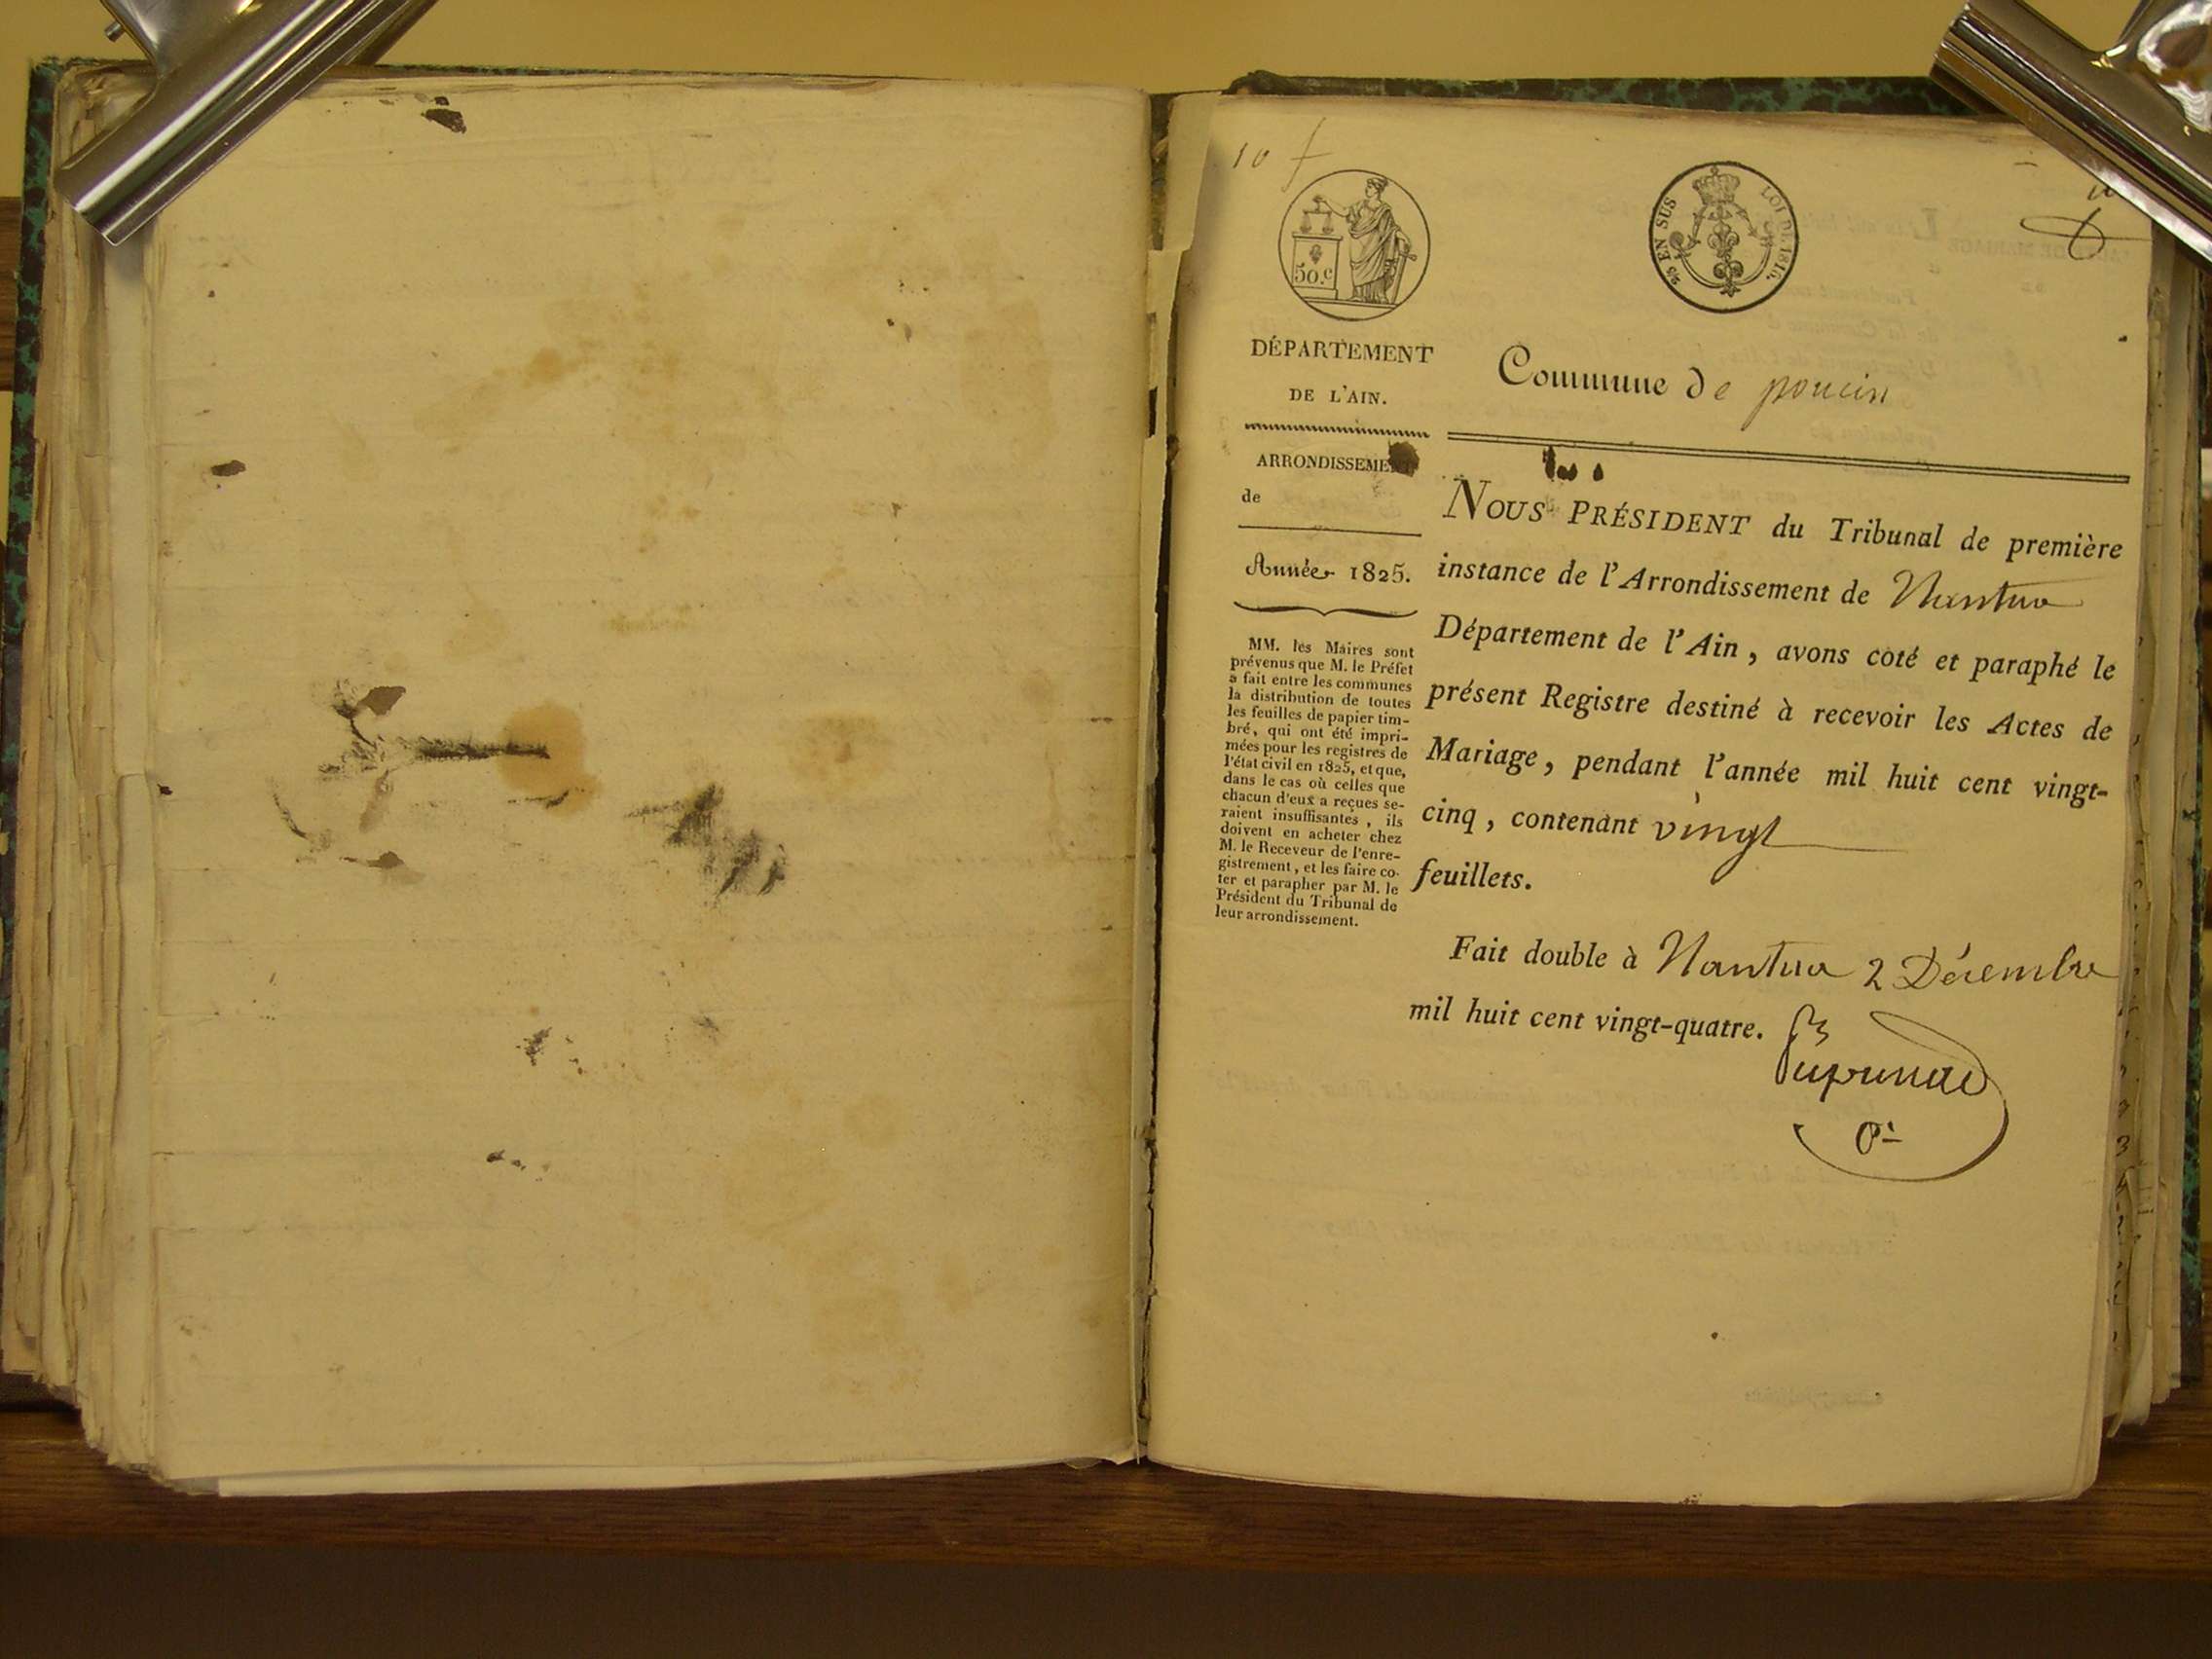 10 f
50.c
2/5 EN SUS
LOI DE 1816.
DÉPARTEMENT
DE L'AIN.
ARRONDISSEMENT
de
Année 1825.
MM. les Maires sont
prévenus que M. le Préfet
a fait entre les communes
la distribution de toutes
les feuilles de papier tim-
bré, qui ont été impri-
mées pour les registres de
l'état civil en 1825, et que,
dans le cas où celles que
chacun d'eux a reçues se-
raient insuffisantes, ils
doivent en acheter chez
M. le Receveur de l'enre-
gistrement, et les faire co-
ter et parapher par M. le
Président du Tribunal de
leur arrondissement.
Commune de poncin
NOUS PRÉSIDENT du Tribunal de première
instance de l'Arrondissement de Nantua
Département de l'Ain, avons coté et paraphé le
présent Registre destiné à recevoir les Actes de
Mariage, pendant l'année mil huit cent vingt-
cinq, contenant vingt
feuillets.
Fait double à Nantua 2 Décembre
mil huit cent vingt-quatre.